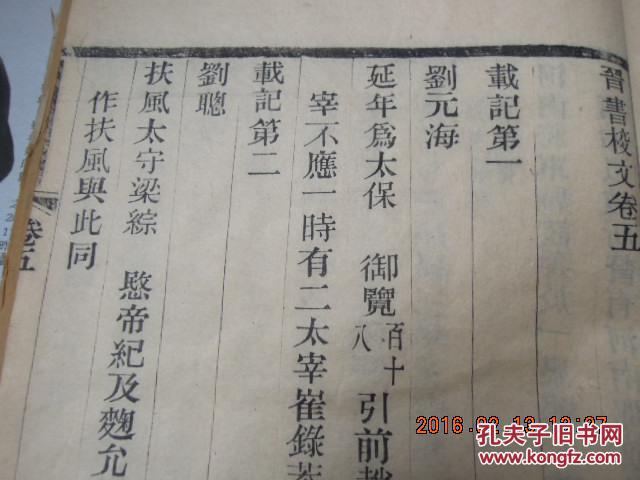 晉書校文卷五
載記第一
劉元海
延年爲太保　御覽百十八引前趙
宰不應一時有二太宰崔錄
載記第二
劉聰
扶風太守梁綜　愍帝紀及麴允
作扶風與此同
卷五
2016.02.13
孔夫子旧书网
www.kongfz.com